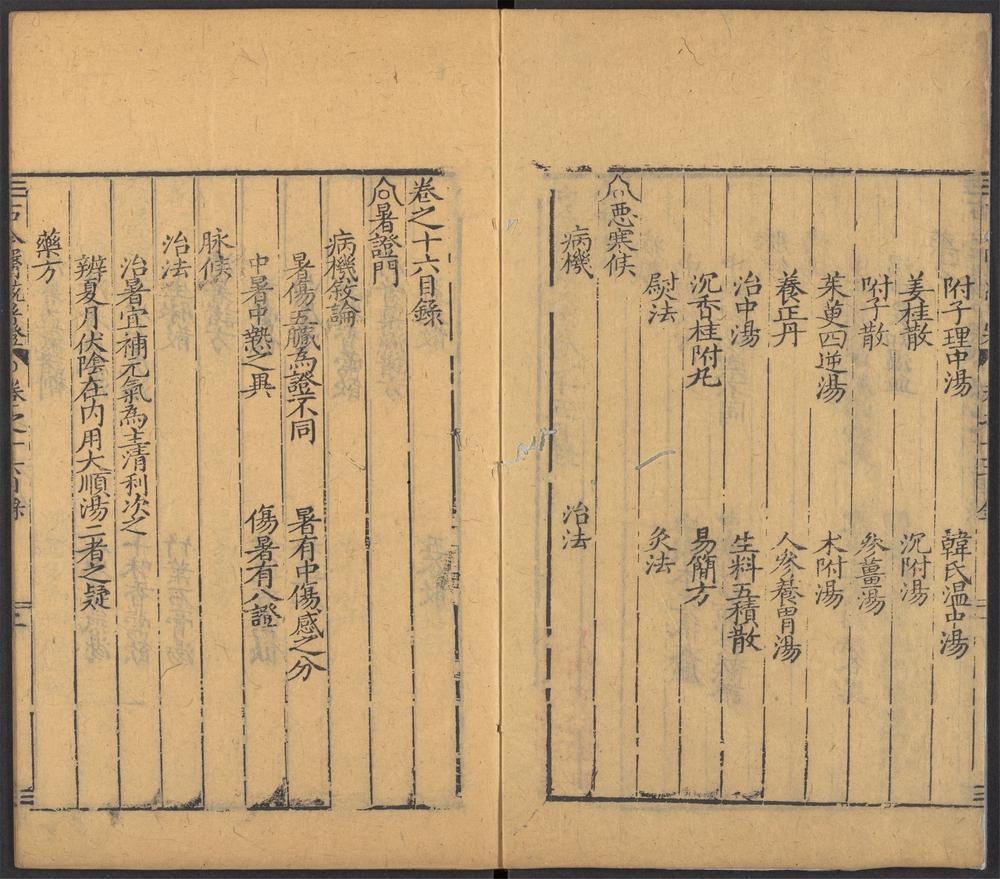 附子理中湯 韓氏温中湯
姜桂散 沉附湯
附子散 參薑湯
茱萸四逆湯 木附湯
養正丹 人參養胃湯
治中湯 生料五積散
沉香桂附丸 易簡方
熨法 灸法
惡寒候
病機 治法
卷之十六目錄
暑證門
病機敘論
暑傷五臟為證不同 暑有中傷感之分
中暑中熱之異 傷暑有八證
脉候
治法
治暑宜補元氣為主清利次之
辨夏月伏陰在内用大順湯二者之疑
藥方
卷之十六目錄